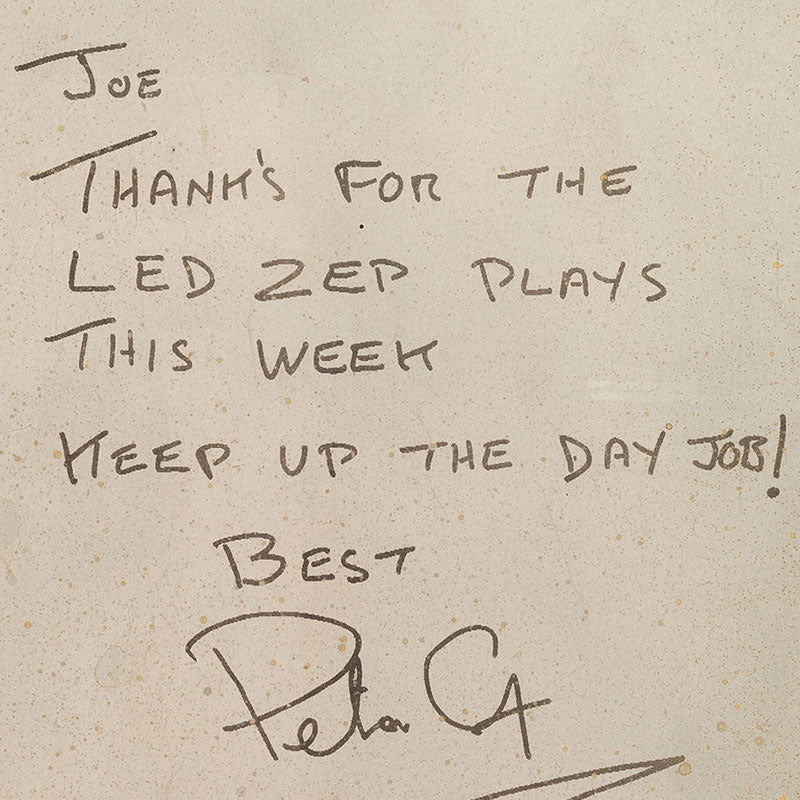 JOE
THANK'S FOR THE
LED ZEP PLAYS
THIS WEEK
KEEP UP THE DAY JOB!
BEST
Peter G